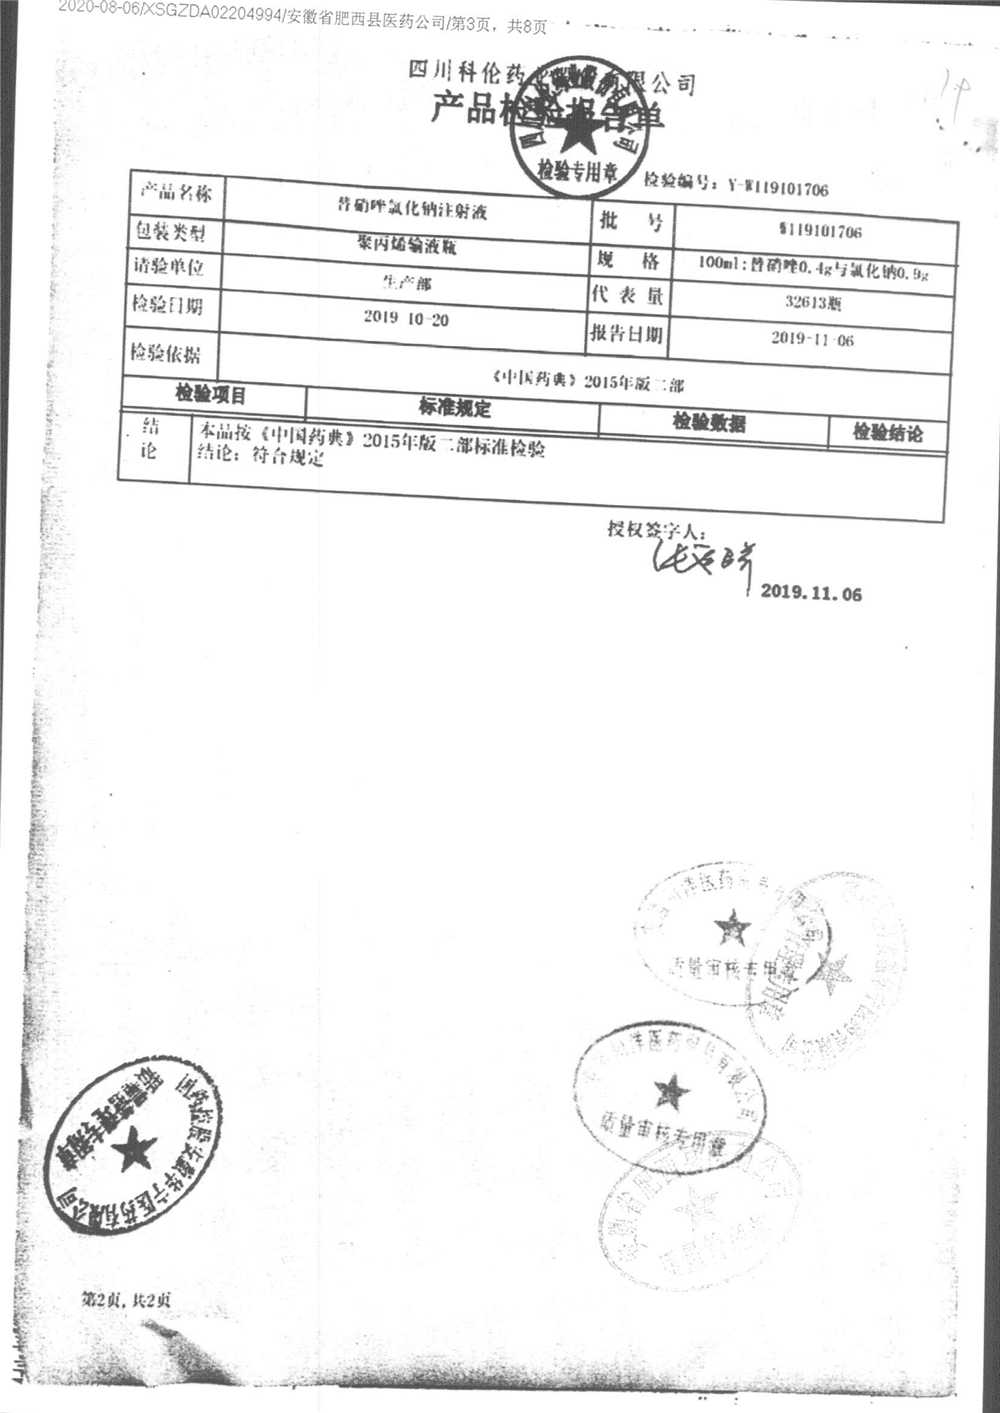 2020-08-06/XSGZDA02204994/安徽省肥西县医药公司/第3页，共8页
四川科伦药 限公司
产品检验报告单
检验专用章
检验编号：Y-W119101706
产品名称 替硝唑氯化钠注射液 批 号 W119101706
包装类型 聚丙烯输液瓶 规 格 100ml:替硝唑0.4g与氯化钠0.9g
请验单位 生产部 代 表 量 32613瓶
检验日期 2019 10-20 报告日期 2019-11-06
检验依据 《中国药典》2015年版二部
检验项目 标准规定 检验数据 检验结论
结论 本品按《中国药典》2015年版二部标准检验
结论：符合规定
授权签字人：
2019.11.06
质量审核专用章
医药有限公司
质量审核专用章
国药控股安徽华宁医药有限公司
质量管理专用章
第2页, 共2页